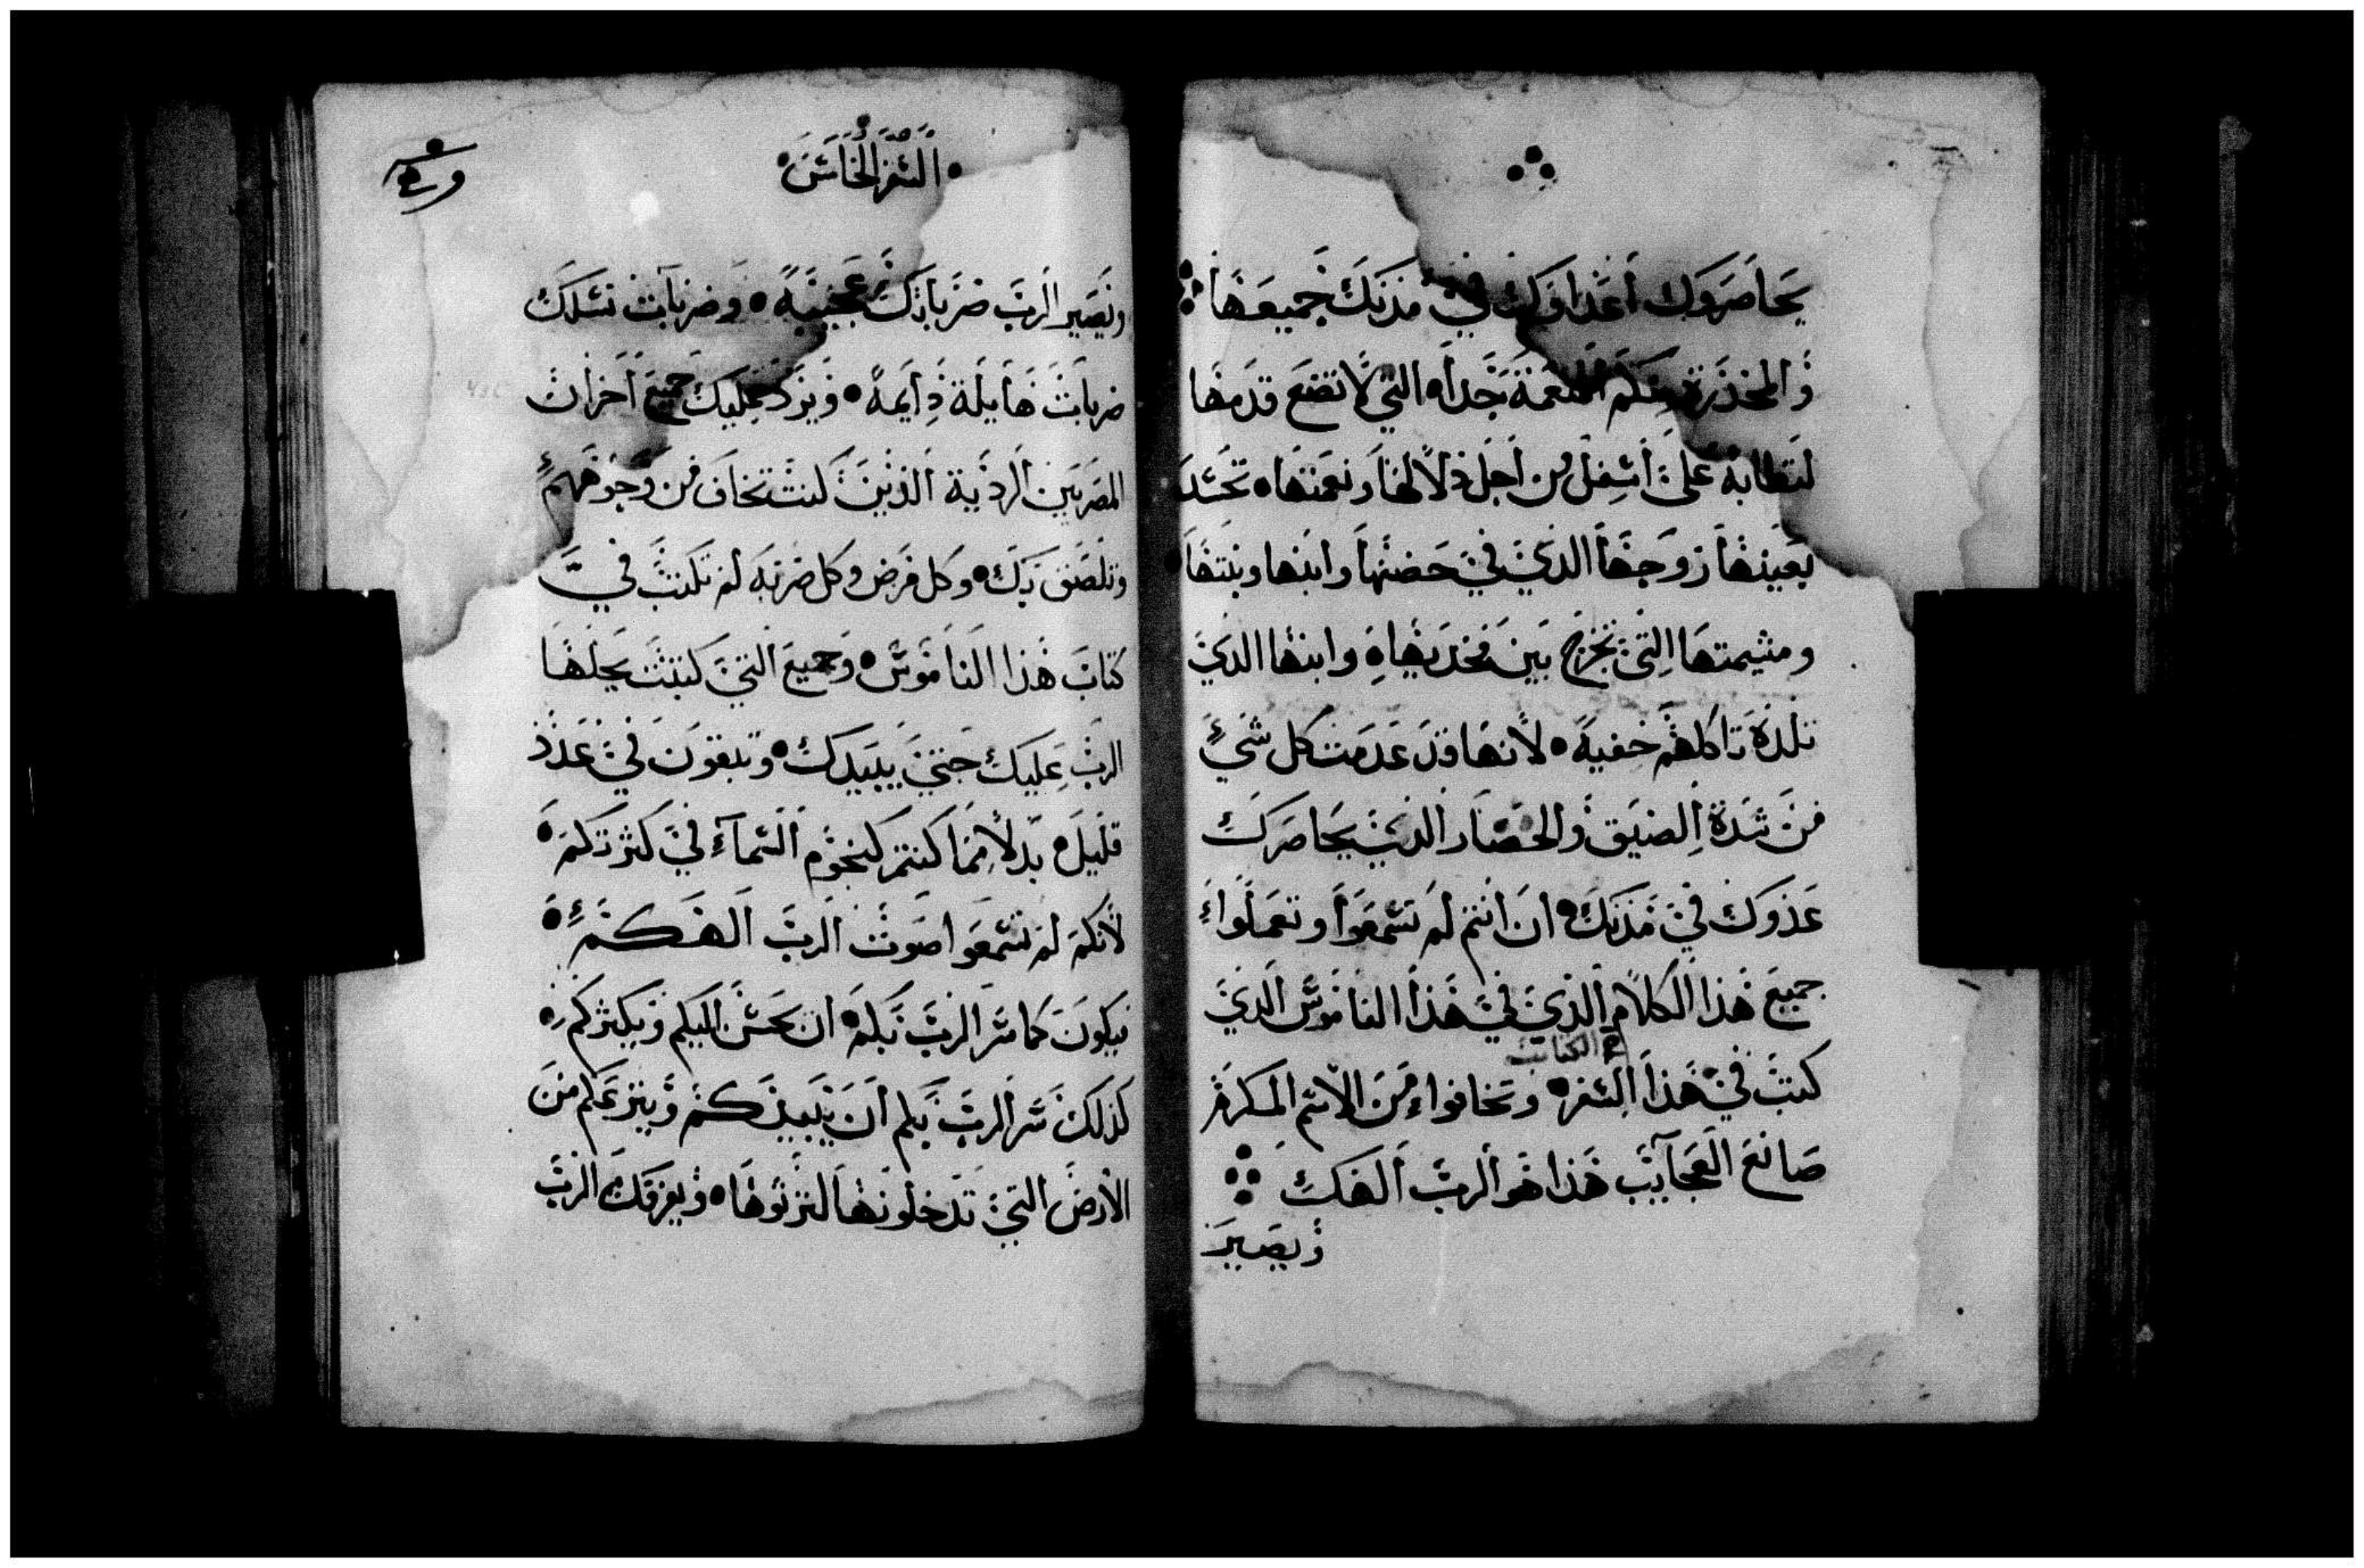 يحاصروك أعداوك في مدنك جميعها
والمخدرة منكم المنعمة جدا التي لا تضع قدمها
لتطابه على أسفل من أجل دلالها ونعمتها تحسد
بعينها زوجها الذي في حضنها وابنها وبنتها
ومشيمتها التي تخرج بين فخديها وابنها الذي
تلده تاكلهم خفية لأنها قد عدمت كل شيء
من شدة الضيق والحصار الذي يحاصرك
عدوك في مدنك ان انتم لم تسمعوا وتعملوا
جميع هذا الكلام الذي في هذا الناموس الذي
الكتاب
كتبت في هذا السفر وتخافوا من الاسم المكرم
صانع العجايب هذا هو الرب الهك
ويصير
السفر الخامس
ويصير الرب ضرباتك عجيبة وضربات نسلك
ضربات هايلة دايمة ويرد عليك جميع احزان
المصريين الردية الذين كنت تخاف من وجوههم
وتلصق بك وكل مرض وكل ضربه لم تكتب في
كتاب هذا الناموس وجميع التي كتبت يجلها
الرب عليك حتى يبيدك وتبقون في عدد
قليل بدلا مما كنتم كنجوم السماء في كثرتكم
لأنكم لم تسمعوا صوت الرب الهكم
فيكون كما سر الرب بكم ان يحسن اليكم ويكثركم
كذلك سر الرب بكم أن يبيدكم وينزعكم من
الأرض التي تدخلونها لترثوها ويفرقك الرب